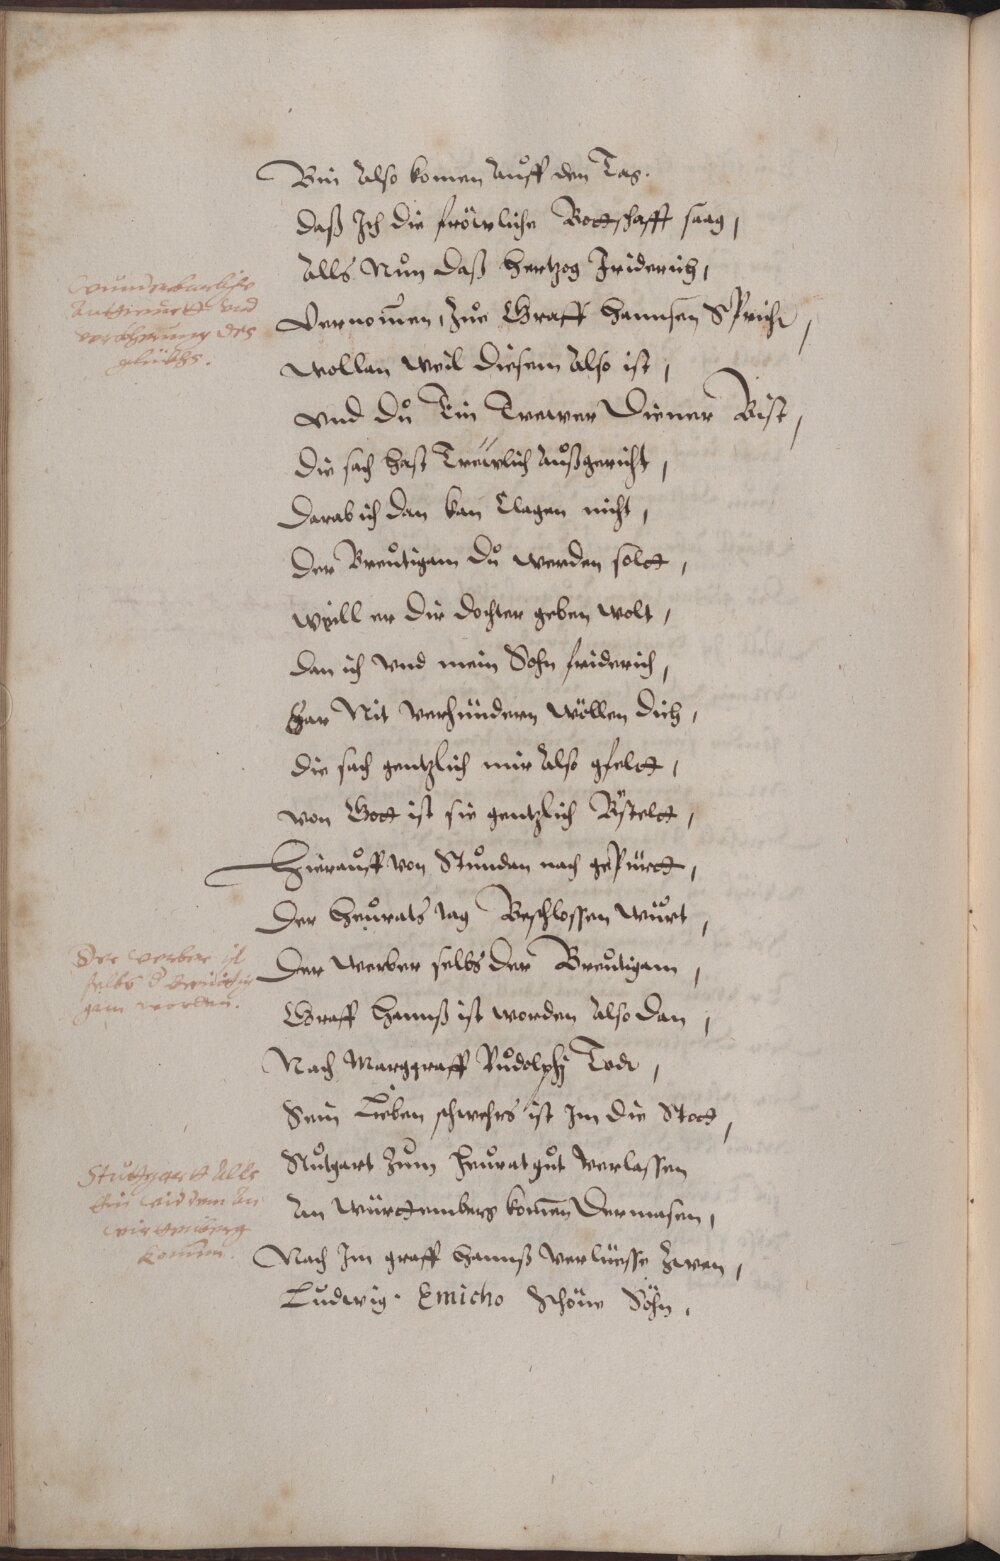 Bin Also komen Auff den Tag.
daß Ich die fröwliche Bottschafft saag,
Alls Nun daß hertzog Friderich,
Vernomen, Zue Graff hannsen Sprich,
wollan weil diesem Also ist,
vnd du Ein Trewer Diener Bist,
die sach hast Treüwlich Außgericht,
Darab ich dan kan Clagen nicht,
Der Breutigam du werden solt,
weill er dir dochter geben wolt,
dan ich vnd mein Sohn friderich,
Gar Nit verhindern wöllen dich,
die sach gentzlich mir Also gfelt,
von Gott ist sie gentzlich Bstelt,
hierauff von Stundan nach gepürtt,
Der heurats tag Beschlossen würt,
Der werber selbs der Breutigam,
Graff hannß ist worden Also dan,
Nach Marggraff Rudolphj Todt,
Sein Lieben schwehrs ist Im die Statt,
Stutgart Zum heurat gut verlassen
An würtemberg komen Dermasen,
Nach Im graff hannß verliesse Zwen,
Ludwig. Emicho Schöne Söhn.
wunderbarliche
vnd
des
glückhs.
Der werber ist
selbs d breütti
gam worden.
Stuttgartt Alls
Ein widdem An
wirtemberg
komen.